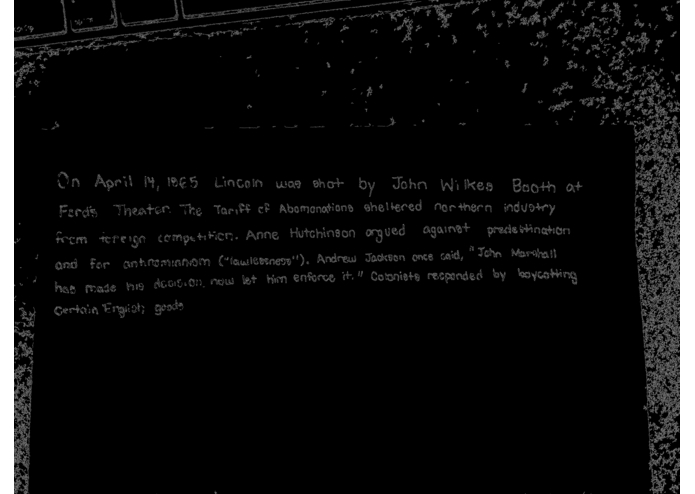 On April 14, 1865 Lincoln was shot by John Wilkes Booth at
Ford's Theater. The Tariff of Abomonations sheltered northern industry
from foreign competition. Anne Hutchinson argued against predestination
and for antinominnism ("lawlessness"). Andrew Jackson once said, "John Marshall
has made his decision, now let him enforce it." Colonists responded by boycotting
certain English goods